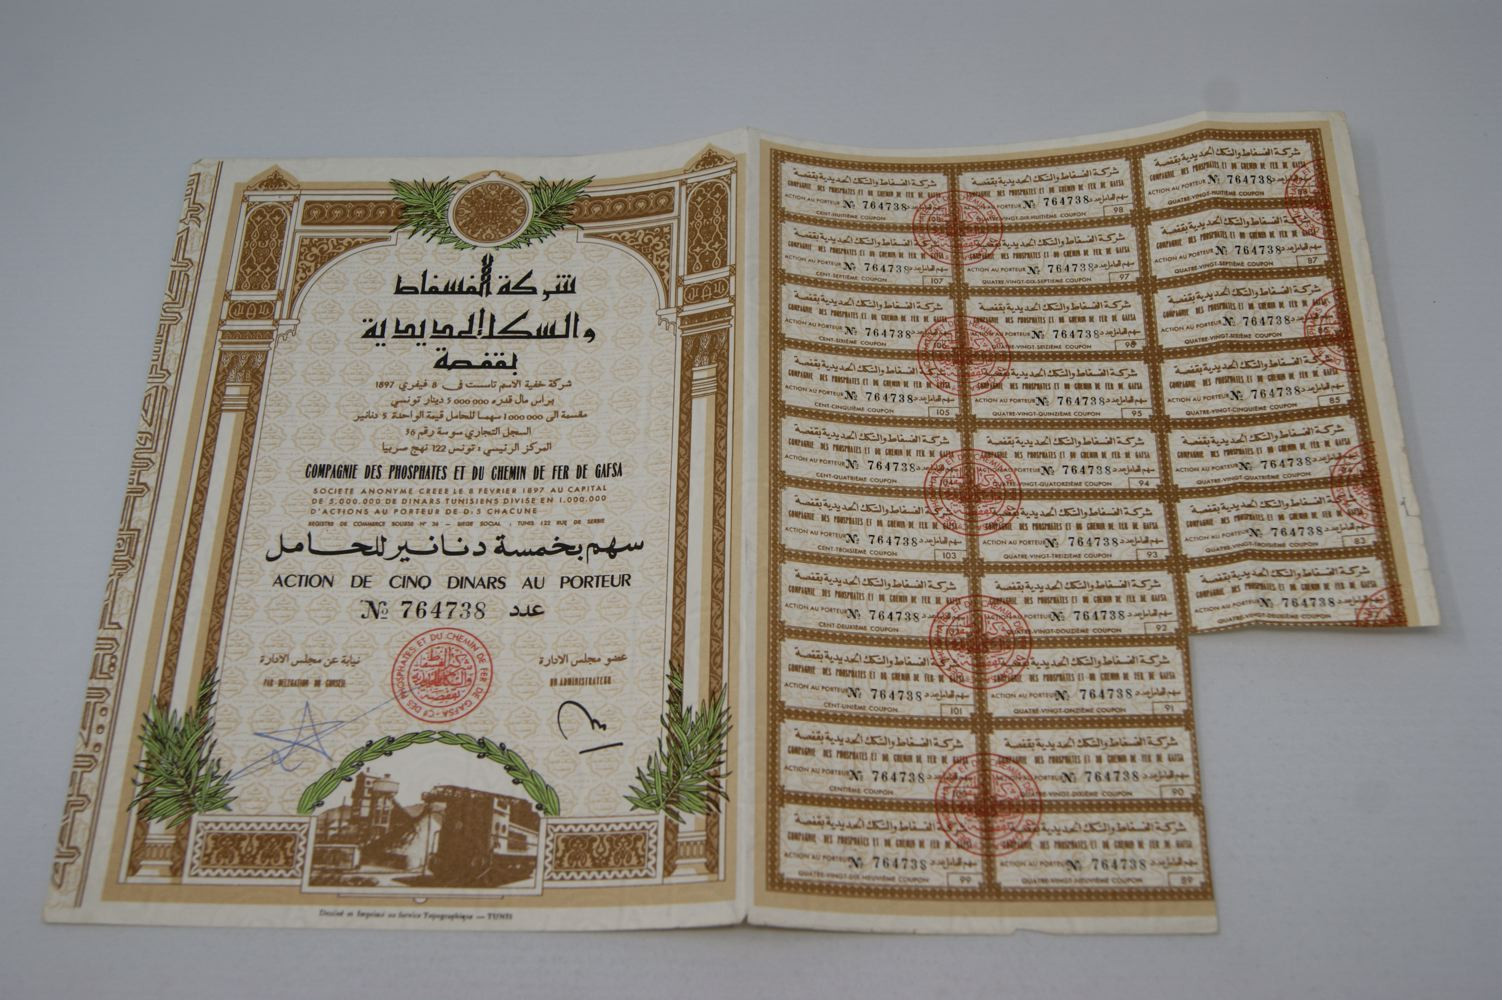 شركة الفسفاط
والسكك الحديدية
بقفصة
شركة خفية الاسم تأسست في 8 فيفري 1897
براس مال قدره 5 000 000 دينار تونسي
مقسمة الى 1 000 000 سهما للحامل قيمة الواحدة 5 دنانير
السجل التجاري سوسة رقم 36
المركز الرئيسي : تونس 122 نهج صربيا
COMPAGNIE DES PHOSPHATES ET DU CHEMIN DE FER DE GAFSA
SOCIETE ANONYME CREEE LE 8 FÉVRIER 1897 AU CAPITAL
DE 5.000.000 DE DINARS TUNISIENS DIVISE EN 1.000.000
D'ACTIONS AU PORTEUR DE D: 5 CHACUNE
REGISTRE DE COMMERCE SOUSSE N° 36 — SIEGE SOCIAL : TUNIS 122 RUE DE SERBIE
سهم بخمسة دنانير للحامل
ACTION DE CINQ DINARS AU PORTEUR
№ 764738 عدد
نيابة عن مجلس الادارة
عضو مجلس الادارة
PAR DELEGATION DU CONSEIL
UN ADMINISTRATEUR
Dessiné et Imprimé au Service Topographique — TUNIS
شركة الفسفاط والسكك الحديدية بقفصة
COMPAGNIE DES PHOSPHATES ET DU CHEMIN DE FER DE GAFSA
ACTION AU PORTEUR № 764738 سهم للحامل عدد
CENT-HUITIÈME COUPON 108
QUATRE-VINGT-DIX-HUITIÈME COUPON 98
QUATRE-VINGT-HUITIÈME COUPON 88
CENT-SEPTIÈME COUPON 107
QUATRE-VINGT-DIX-SEPTIÈME COUPON 97
QUATRE-VINGT-SEPTIÈME COUPON 87
CENT-SIXIÈME COUPON 106
QUATRE-VINGT-SEIZIÈME COUPON 96
QUATRE-VINGT-SIXIÈME COUPON 86
CENT-CINQUIÈME COUPON 105
QUATRE-VINGT-QUINZIÈME COUPON 95
QUATRE-VINGT-CINQUIÈME COUPON 85
CENT-QUATRIÈME COUPON 104
QUATRE-VINGT-QUATORZIÈME COUPON 94
QUATRE-VINGT-QUATRIÈME COUPON
CENT-TROISIÈME COUPON 103
QUATRE-VINGT-TREIZIÈME COUPON 93
QUATRE-VINGT-TROISIÈME COUPON 83
CENT-DEUXIÈME COUPON 102
QUATRE-VINGT-DOUZIÈME COUPON 92
QUATRE-VINGT-DEUXIÈME COUPON
CENT-UNIÈME COUPON 101
QUATRE-VINGT-ONZIÈME COUPON 91
CENTIÈME COUPON 100
QUATRE-VINGT-DIXIÈME COUPON 90
QUATRE-VINGT-DIX-NEUVIÈME COUPON 99
QUATRE-VINGT-NEUVIÈME COUPON 89